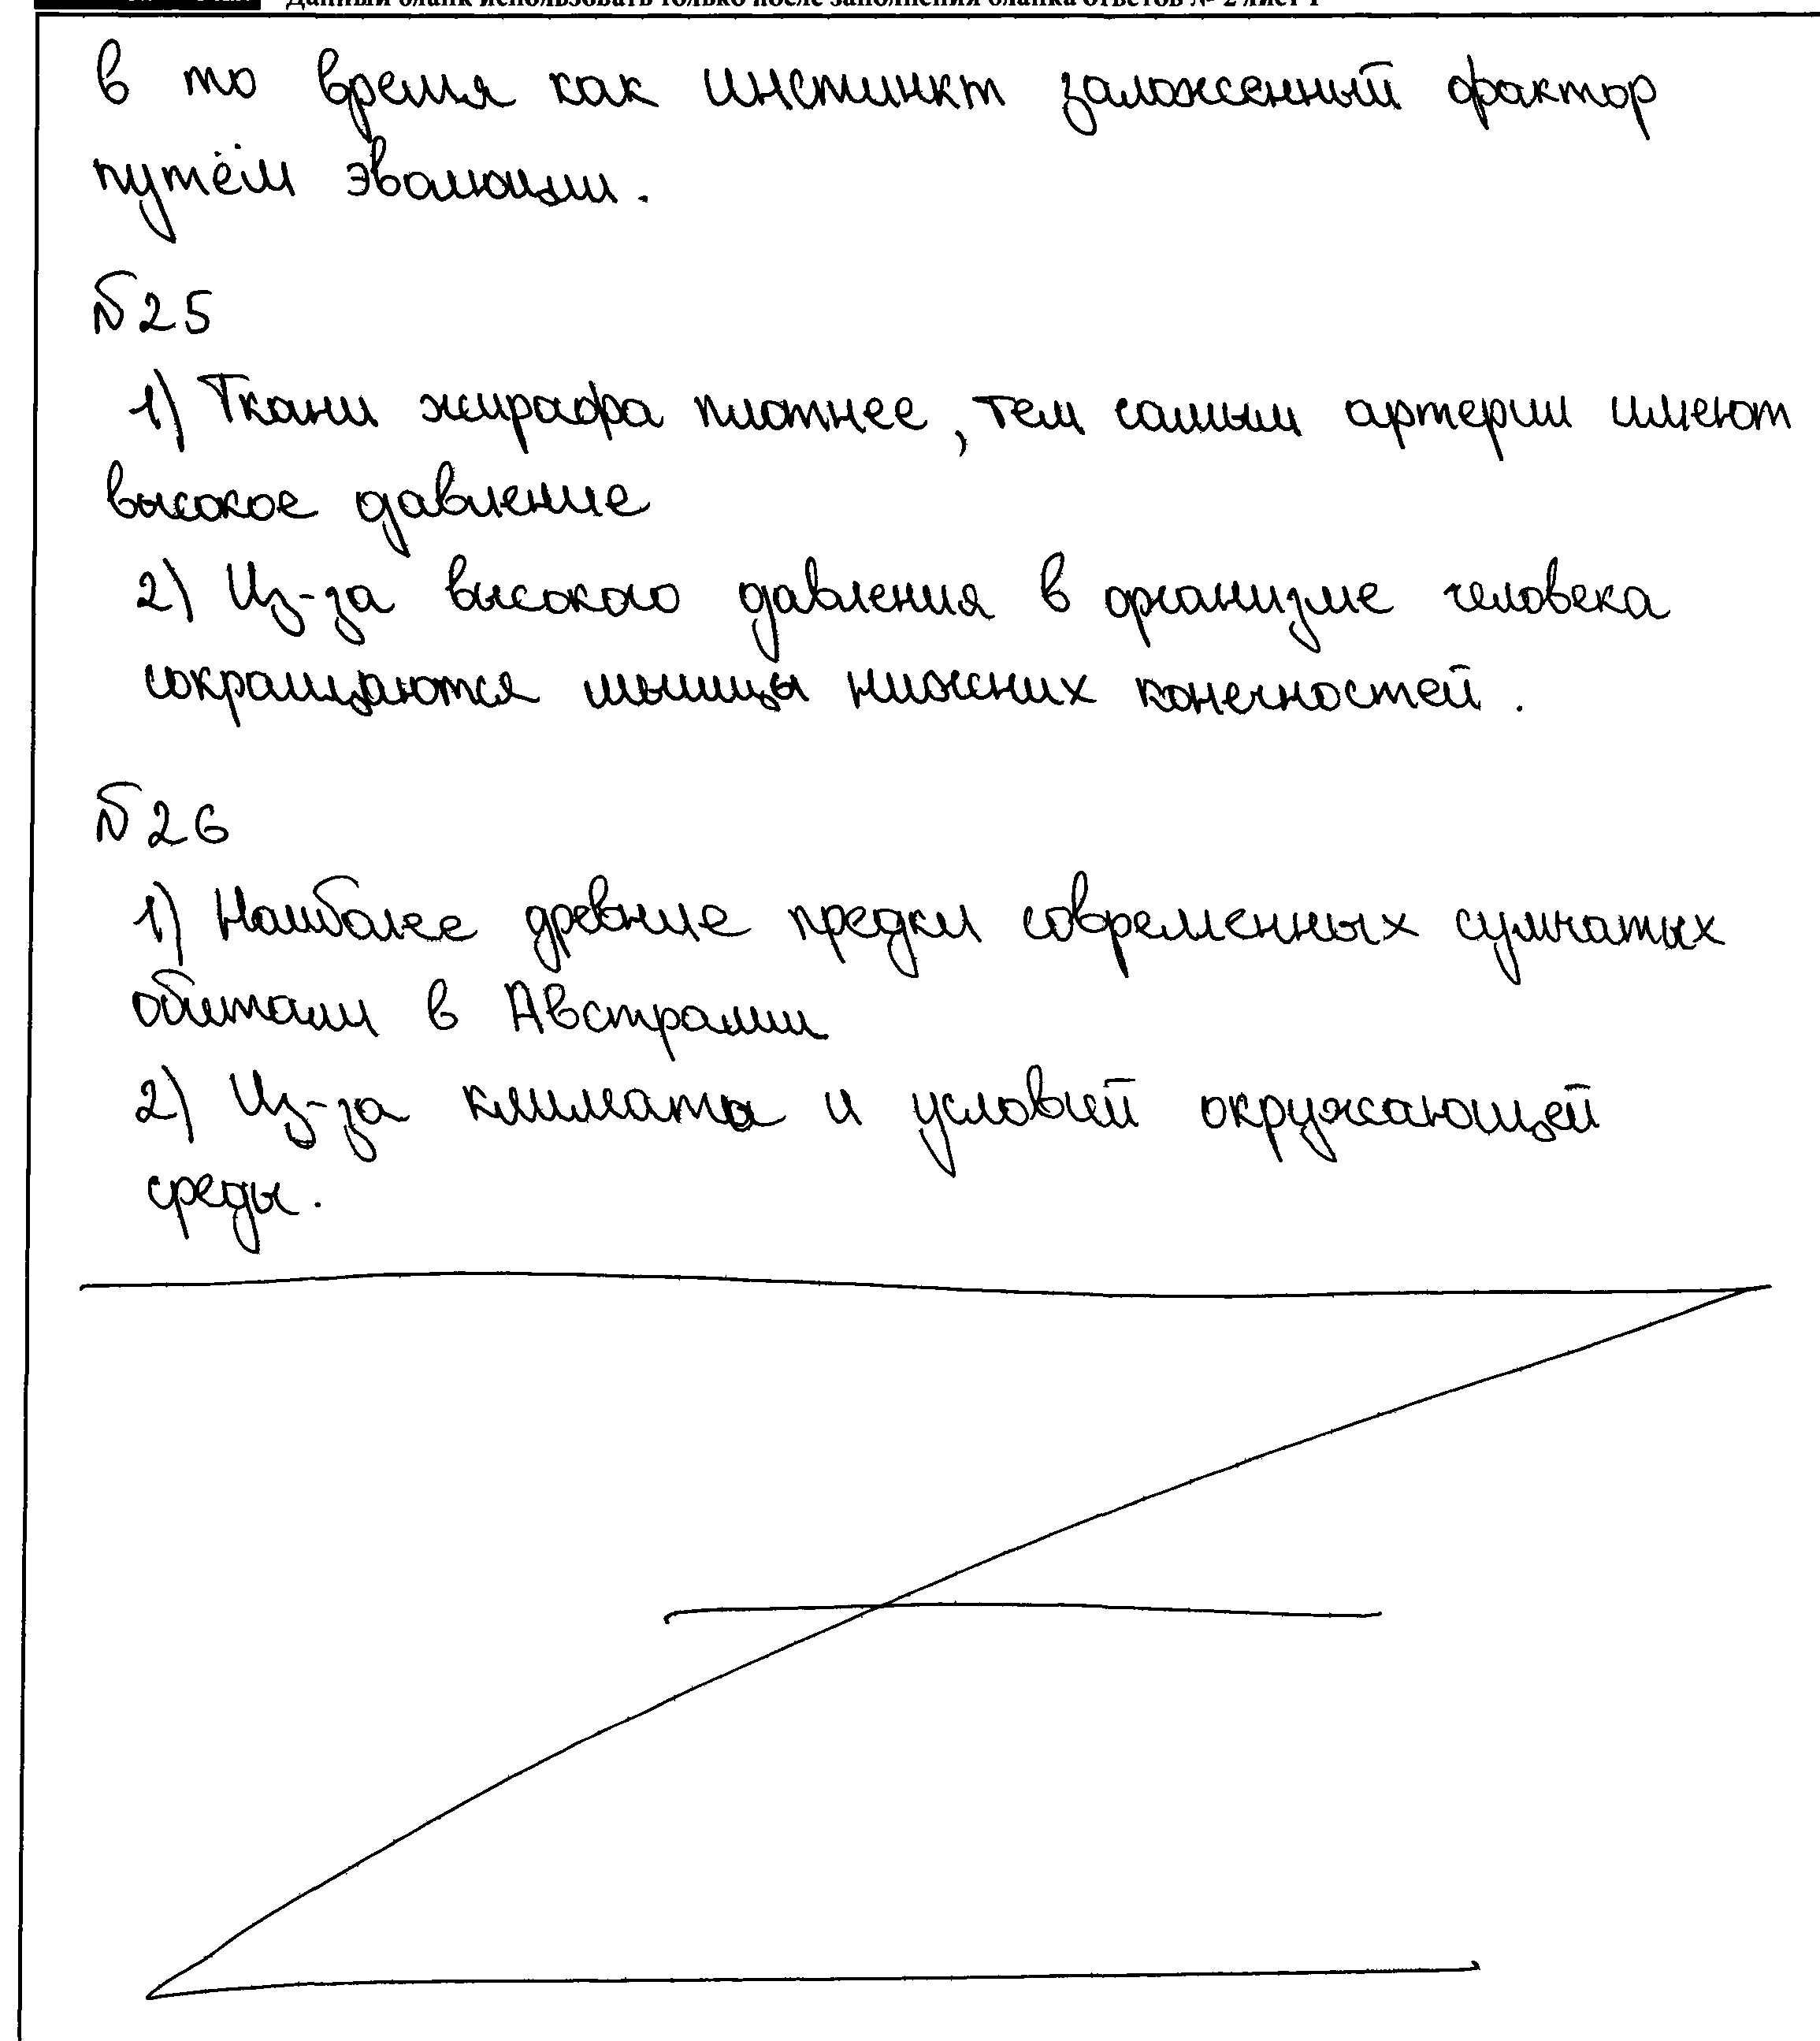 Данный бланк использовать только после заполнения бланка ответов № 2 лист 1
в то время как инстинкт заложенный фактор
путём эволюции.
№25
1) Ткани жирафа плотнее, тем самым артерии имеют
высокое давление
2) Из-за высокого давления в организме человека
сокращаются мышцы нижних конечностей.
№26
1) Наиболее древние предки современных сумчатых
обитали в Австралии
2) Из-за климата и условий окружающей
среды.